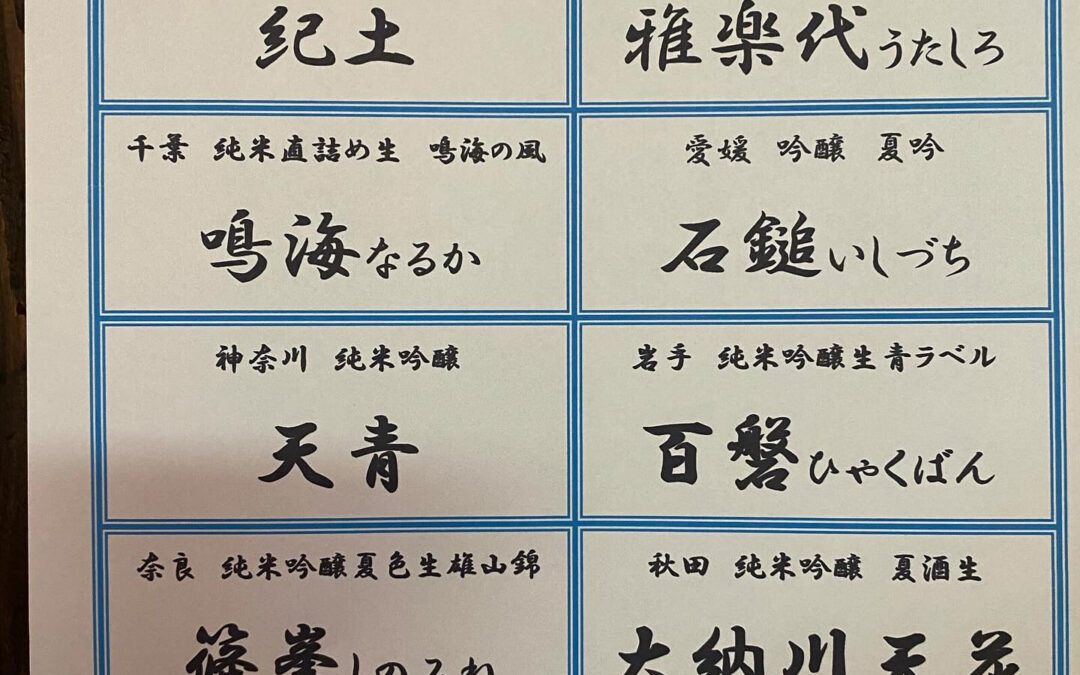 紀土
雅楽代うたしろ
千葉 純米直詰め生 鳴海の風
鳴海なるか
愛媛 吟醸 夏吟
石鎚いしづち
神奈川 純米吟醸
天青
岩手 純米吟醸生青ラベル
百磐ひゃくばん
奈良 純米吟醸夏色生雄山錦
篠峯しのみね
秋田 純米吟醸 夏酒生
大納川天花